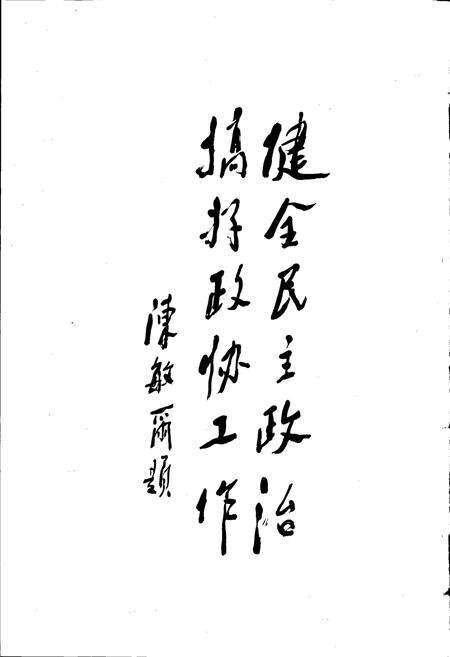 健全民主政治
搞好政协工作
陳敏爾題